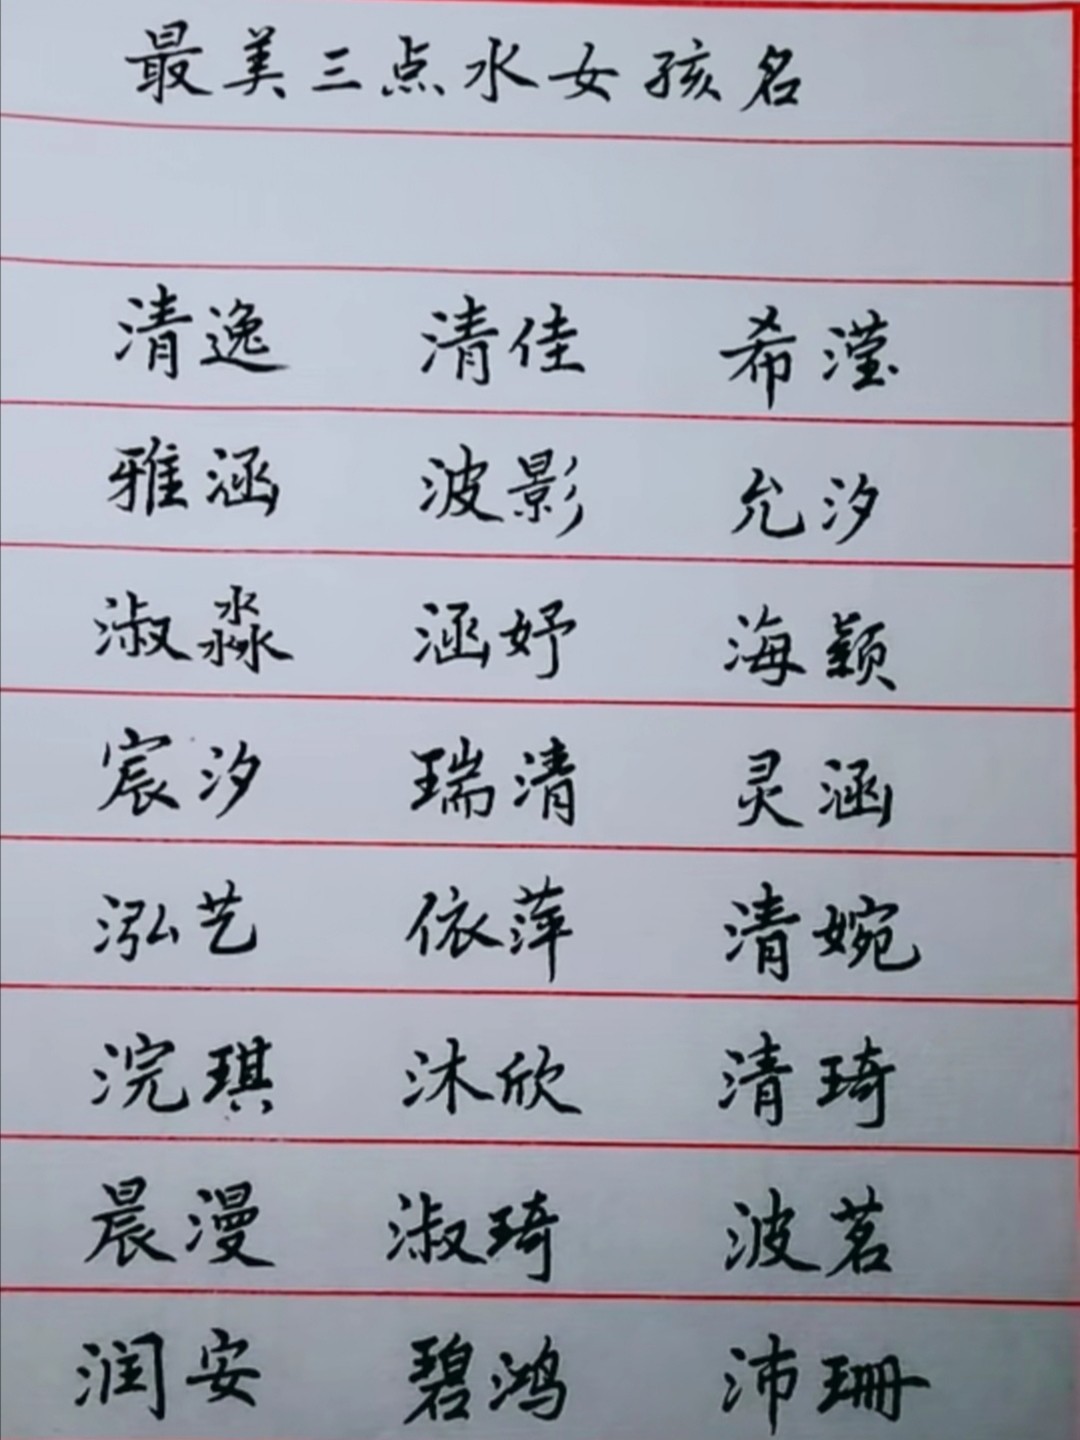 最美三点水女孩名
清逸 清佳 希滢
雅涵 波影 允汐
淑淼 涵妤 海颖
宸汐 瑞清 灵涵
泓艺 依萍 清婉
浣琪 沐欣 清琦
晨漫 淑琦 波茗
润安 碧鸿 沛珊